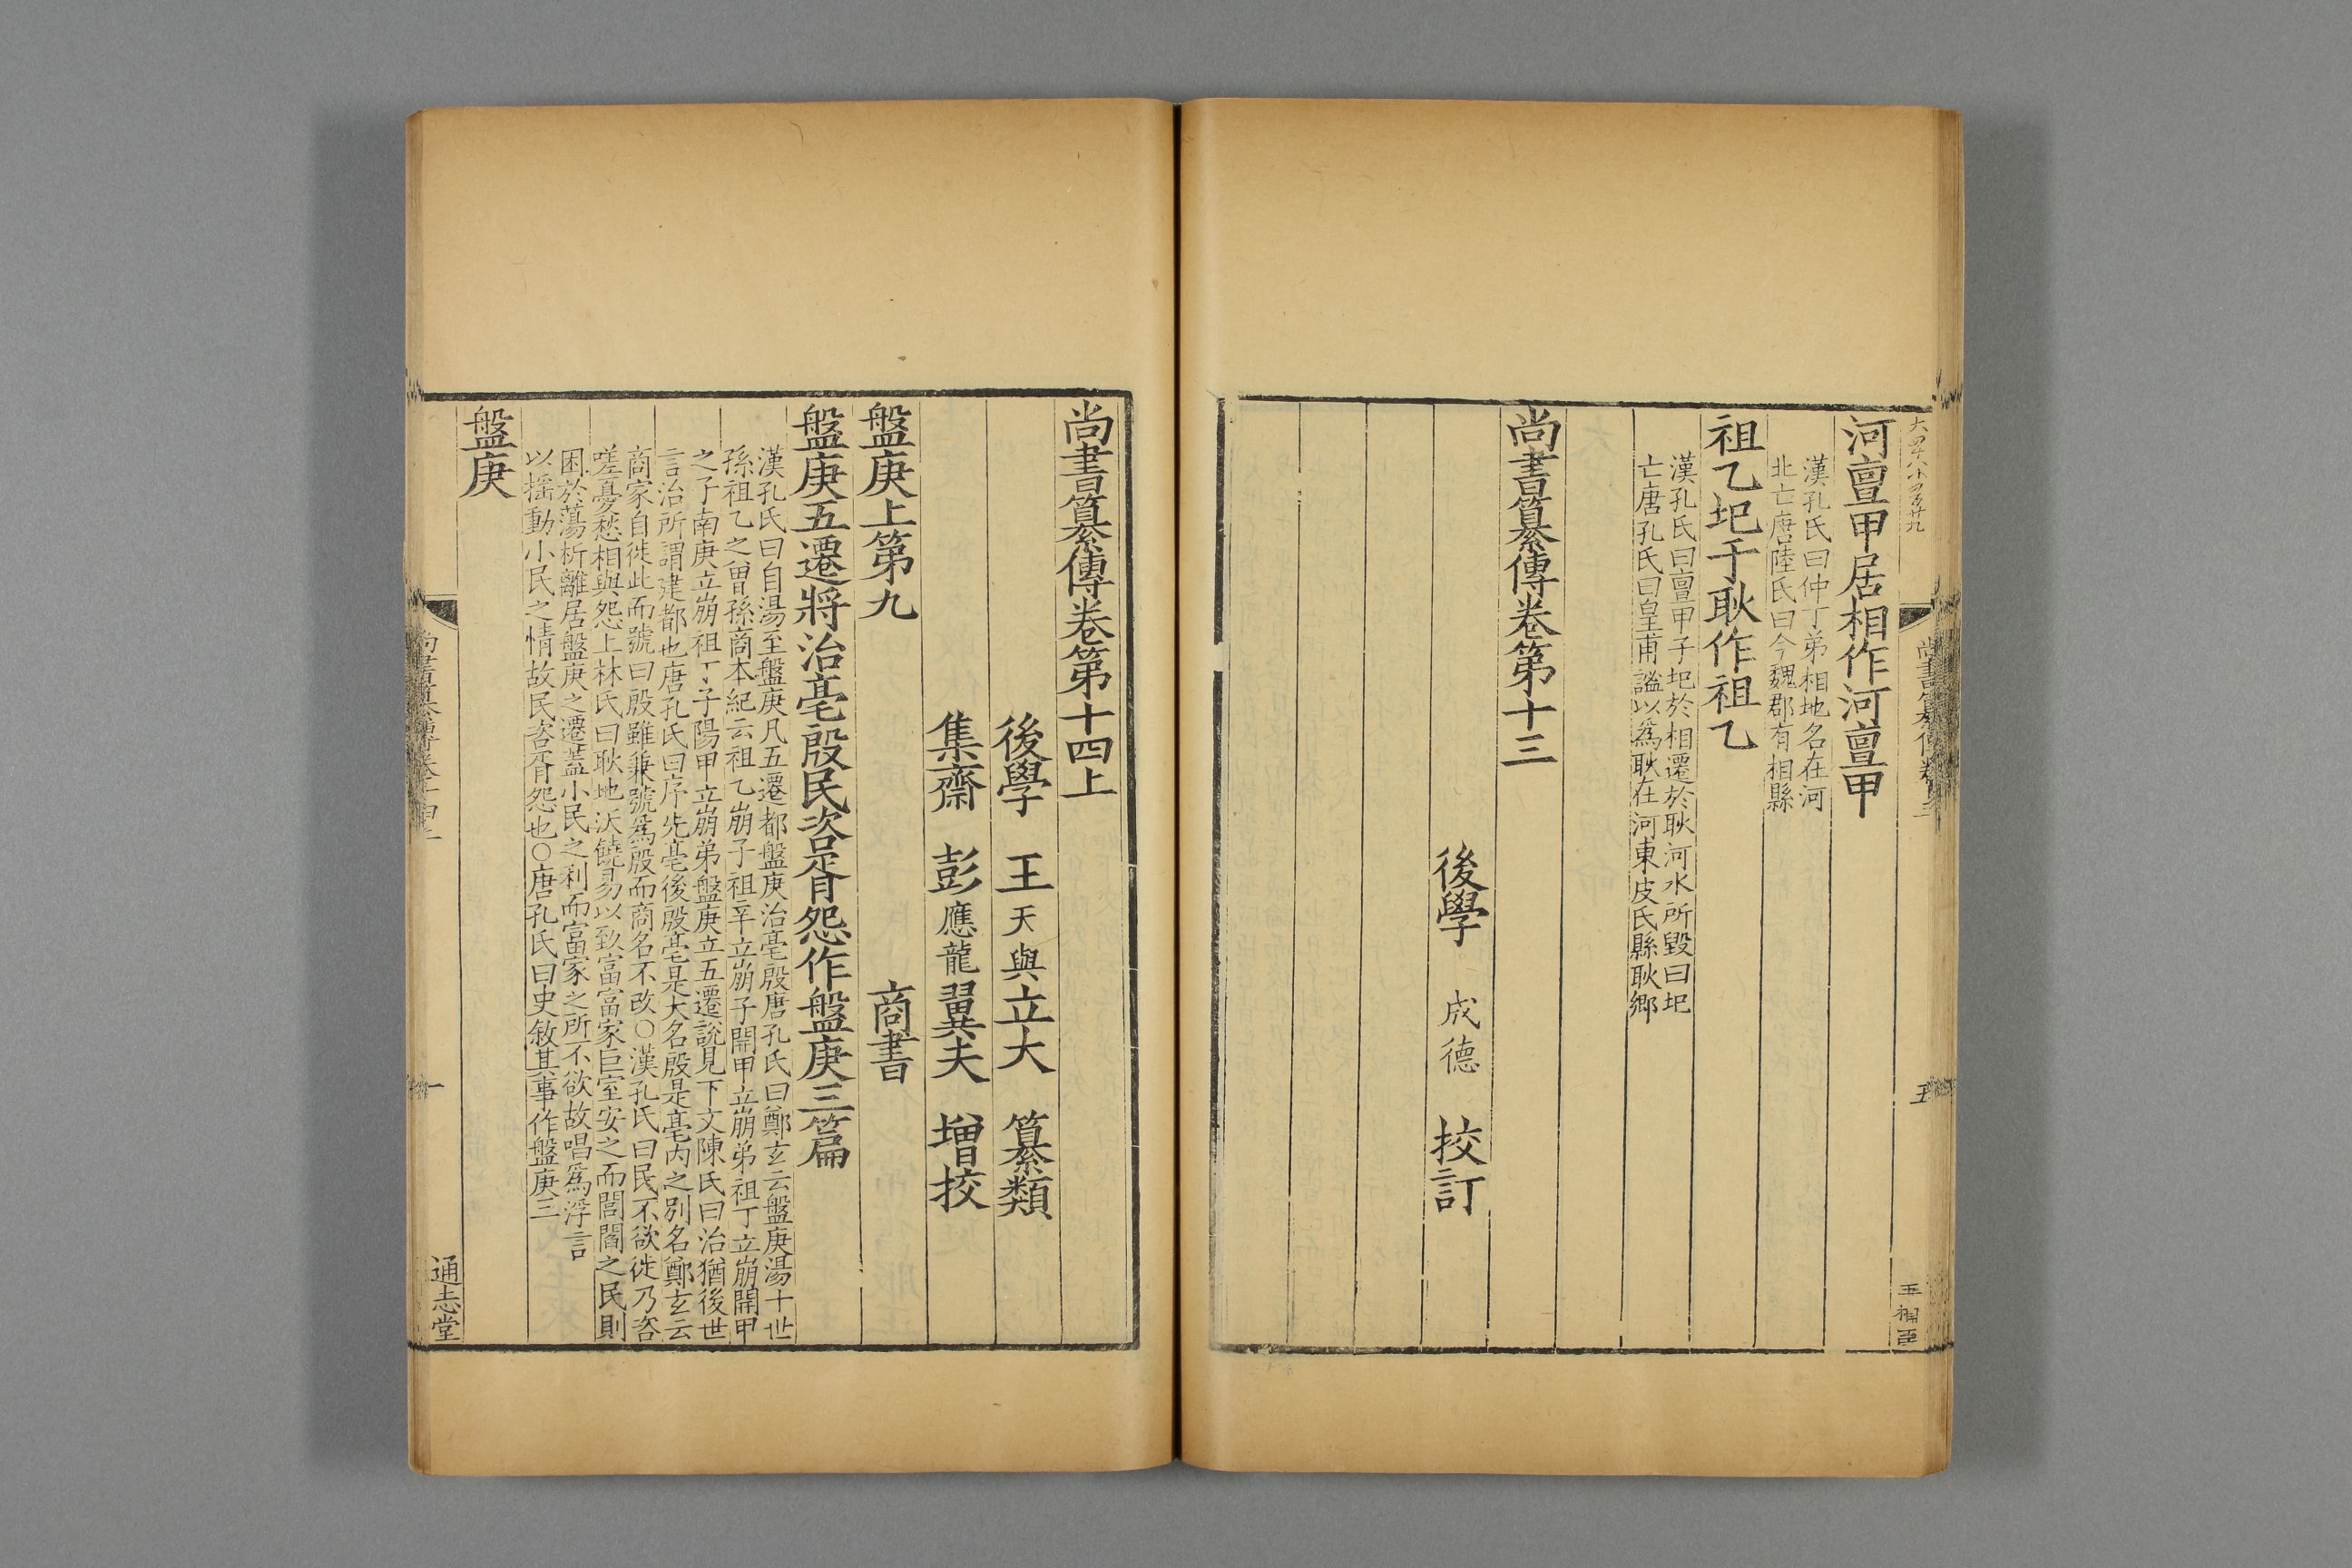 河亶甲居相作河亶甲
漢孔氏曰仲丁弟相地名在河
北亡唐陸氏曰今魏郡有相縣
祖乙圯于耿作祖乙
漢孔氏曰亶甲子圯於相遷於耿河水所毀曰圯
亡唐孔氏曰皇甫謐以爲耿在河東皮氏縣耿鄉
尚書纂傳卷第十三
後學 成德 挍訂
尚書纂傳卷第十四上
後學 王天與立大 纂類
集齋 彭應龍翼夫 增挍
盤庚上第九 商書
盤庚五遷將治亳殷民咨胥怨作盤庚三篇
漢孔氏曰自湯至盤庚凡五遷都盤庚治亳殷唐孔氏曰鄭玄云盤庚湯十世
孫祖乙之曾孫商本紀云祖乙崩子祖辛立崩子開甲立崩弟祖丁立崩開甲
之子南庚立崩祖丁子陽甲立崩弟盤庚立五遷說見下文陳氏曰治猶後世
言治所謂建都也唐孔氏曰序先亳後殷亳是大名殷是亳内之別名鄭玄云
商家自徙此而號曰殷雖兼號爲殷而商名不改○漢孔氏曰民不欲徙乃咨
嗟憂愁相與怨上林氏曰耿地沃饒易以致富富家巨室安之而閭閻之民則
困於蕩析離居盤庚之遷蓋小民之利而富家之所不欲故唱爲浮言
以搖動小民之情故民咨胥怨也○唐孔氏曰史敘其事作盤庚三
盤庚
一
通志堂